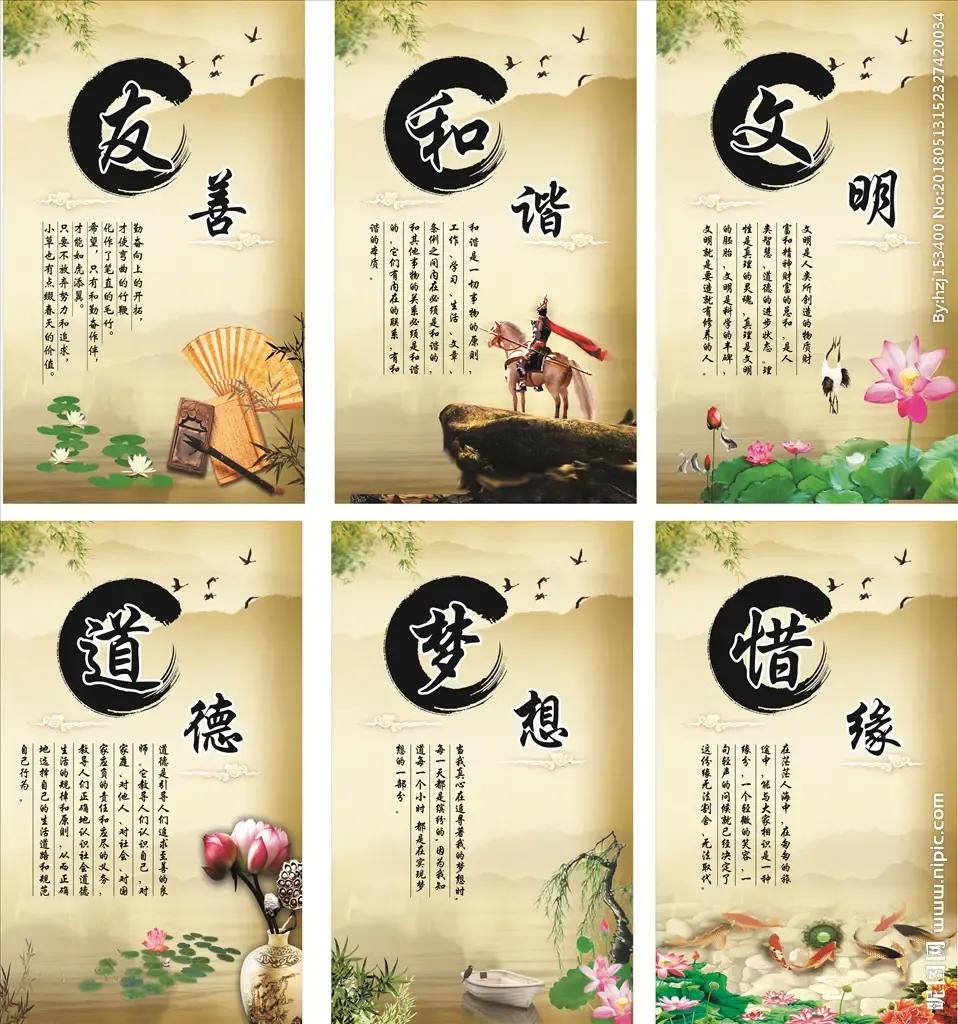 友善
勤奋向上的开拓，
才使弯曲的竹鞭
化作了笔直的毛竹。
希望，只有和勤奋作伴，
才能如虎添翼。
只要不放弃努力和追求，
小草也有点缀春天的价值。
和谐
和谐是一切事物的原则，
工作、学习、生活、文章、
条例之间内在必须是和谐的，
和其他事物的关系必须是和谐
的，它们有内在的联系，有和
谐的本质。
文明
文明是人类所创造的物质财
富和精神财富的总和，是人
类智慧、道德的进步状态。理
性是真理的灵魂，真理是文明
的胚胎，文明是科学的丰碑，
文明就是要造就有修养的人。
道德
道德是引导人们追求至善的良
师。它教导人们认识自己，对
家庭、对他人、对社会、对国
家应负的责任和应尽的义务，
教导人们正确地认识社会道德
生活的规律和原则，从而正确
地选择自己的生活道路和规范
自己行为。
梦想
当我真心在追寻著我的梦想时，
每一天都是缤纷的，因为我知
道每一个小时，都是在实现梦
想的一部分。
惜缘
在茫茫人海中，在匆匆的旅
途中，能与大家相识是一种
缘分，一个轻微的笑容，一
句轻声的问候就已经决定了
这份缘无法割舍、无法取代。
By:hzj153400 No:20180513152327420034
昵图网 www.nipic.com